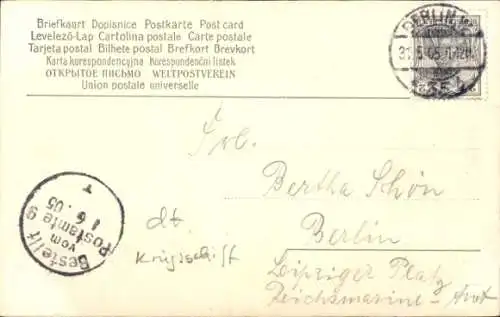 Briefkaart Dopisnice Postkarte Post card
Levelező-Lap Cartolina postale Carte postale
Tarjeta postal Bilhete postal Brefkort Brevkort
Karta korespondencyjna Korespondenčni listek
ОТКРЫТОЕ ПИСЬМО WELTPOSTVEREIN
Union postale universelle
BERLIN
Bertha Schön
Berlin
Leipziger Platz
Reichsmarine-Amt
dt.
Kriegsschiff
Bestellt
vom
Postamte 9
1 6. 05